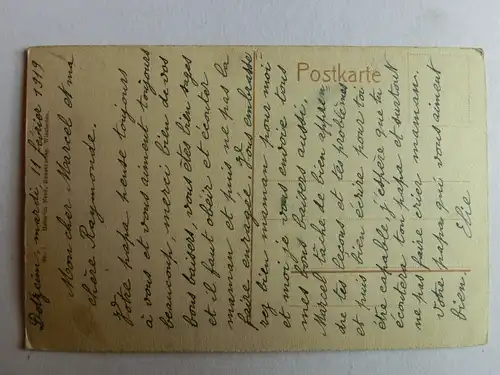 Delzeim, mardi 11 février 1919
Mon cher Marcel et ma
chère Raymonde.
Votre papa pense toujours
à vous et vous aiment toujours
beaucoup, merci bien de vos
bons baisers, vous êtes bien sages
et il faut obéir et écouter
maman et puis ne pas la
faire enragée. Vous embrasse
rez bien maman pour moi
et moi je vous envoie tous
mes bons baisers aussi.
Marcel tâche de bien appren
dre tes leçons et tes problèmes
et puis bien écrire pour toi
être capable, j'espère que tu
écouteras ton papa et surtout
ne pas faire crier maman.
Votre papa qui vous aiment
bien Elie
Postkarte